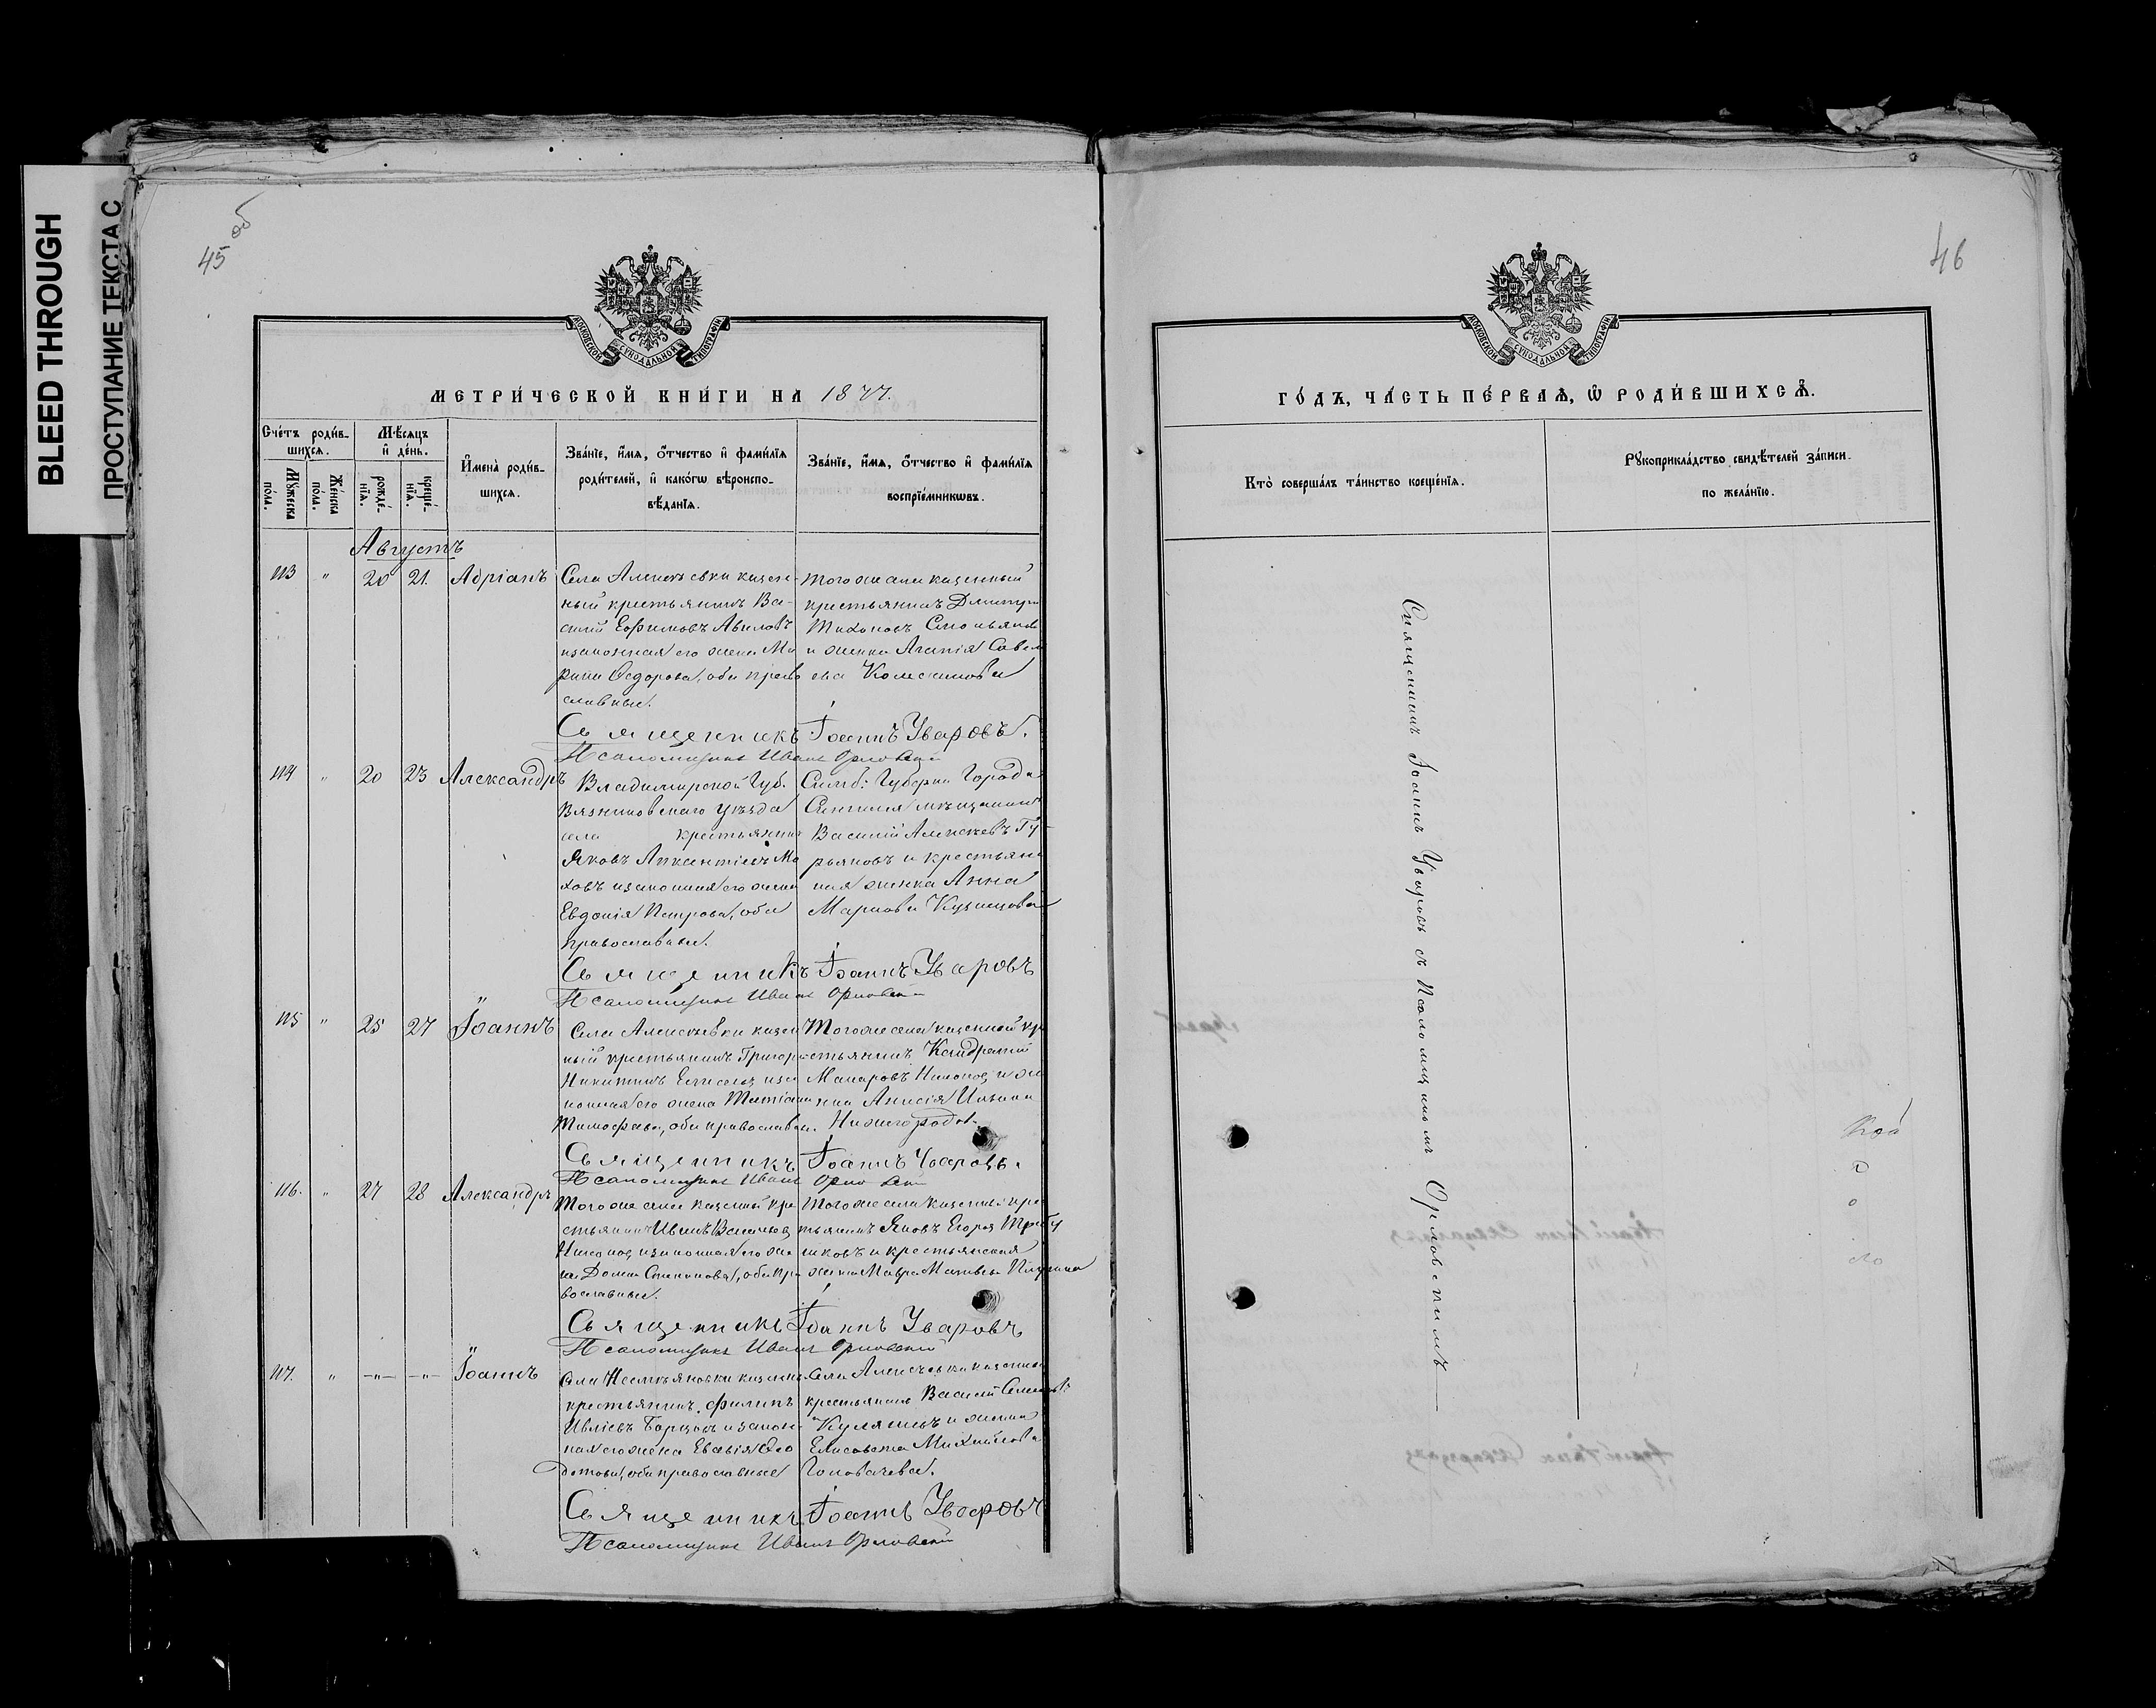 BLEED THROUGH
ПРОСТУПАНИЕ ТЕКСТА С
45 об
46
МОСКОВСКОЙ СѴНОДАЛЬНОЙ ТИПОГРАФІИ
МЕТРИ́ЧЕСКОЙ КНИ́ГИ НА 1877.
Сче́тъ роди́в-
шихся.
Мѣ́сяцъ
и҆ де́нь.
Му́жеска
по́ла.
Же́нска
по́ла.
рожде́-
нїя.
креще́-
нїя.
И҆мена̀ роди́в-
шихся.
Зва́нїе, и҆́мя, ѻ҆́тчество и҆ фами́лїя
роди́телей, и҆ како́гѡ вѣроиспо-
вѣ́данїя.
Зва́нїе, и҆́мя, ѻ҆́тчество и҆ фами́лїя
воспрїе́мникѡвъ.
Августъ
113 " 20 21. Адріанъ
Села Алексѣевки казен-
ный крестьянинъ Ва-
силій Ефимовъ Авиловъ
изаконная его жена Ма
рина Ѳедорова, оба право
славные.
тогоже села казенный
крестьянинъ Дмитрій
Тихоновъ
и женка Агапія Савель
ева
Священникъ Іоаннъ Уваровъ.
Псаломщикъ Иванъ Орловскій
114 " 20 23 Александръ
Владимирской Губ.
Вязниковскаго уѣзда
села крестьянинъ
Яковъ Авксентіевъ Мо
ховъ изаконная его жена
Евдокія Петрова, оба
православные.
Симб: Губерніи Города
мѣщанинъ
Василій Алексѣевъ Гу-
рьяновъ и крестьянс
кая женка Анна
Маркова Кузнецова
Священникъ Іоаннъ Уваровъ
Псаломщикъ Иванъ Орловскій
115 " 25 27 Іоаннъ
Села Алексѣевки казен
ный крестьянинъ Григорій
Никитинъ иза
конная его жена Татіана
Тимофеева, оба православн.
Тогоже села казенной кре
стьянинъ Кандратій
Макаровъ и же
нка Анисія Ильина
Нижегородов.
Священникъ Іоаннъ Уваровъ.
Псаломщикъ Иванъ Орловскій
116. " 27 28 Александръ
Тогоже села казенный кре
стьянинъ Иванъ Васильев
изаконная его же
на Домна Степанова, оба пра
вославные.
Тогоже села казенный кре
стьянинъ Яковъ Егоровъ
и крестьянская
женка Мавра Матвѣева
Священникъ Іоаннъ Уваровъ
Псаломщикъ Иванъ Орловскій
117. " -"- -"- Іоаннъ
Села казенный
крестьянинъ Филипъ
Ивлієвъ Борцовъ изакон-
ная его жена Евсевія Ѳео
дотова, оба православные
Села Алексѣевки казенной
крестьянинъ Василій Семеновъ
Куляшовъ и женка
Елисавета Михайлова
Головачева.
Священникъ Іоаннъ Уваровъ
Псаломщикъ Иванъ Орловскій
МОСКОВСКОЙ СѴНОДАЛЬНОЙ ТИПОГРАФІИ
ГО́ДЪ, ЧА́СТЬ ПЕ́РВАЯ, Ѡ҆ РОДИ́ВШИХСЯ.
Кто̀ соверша́лъ та́инство креще́нїя.
Рꙋкоприкла́дство свидѣ́телей за́писи
по жела́нїю.
Священникъ Іоаннъ Уваровъ съ Псаломщикомъ Орловскимъ